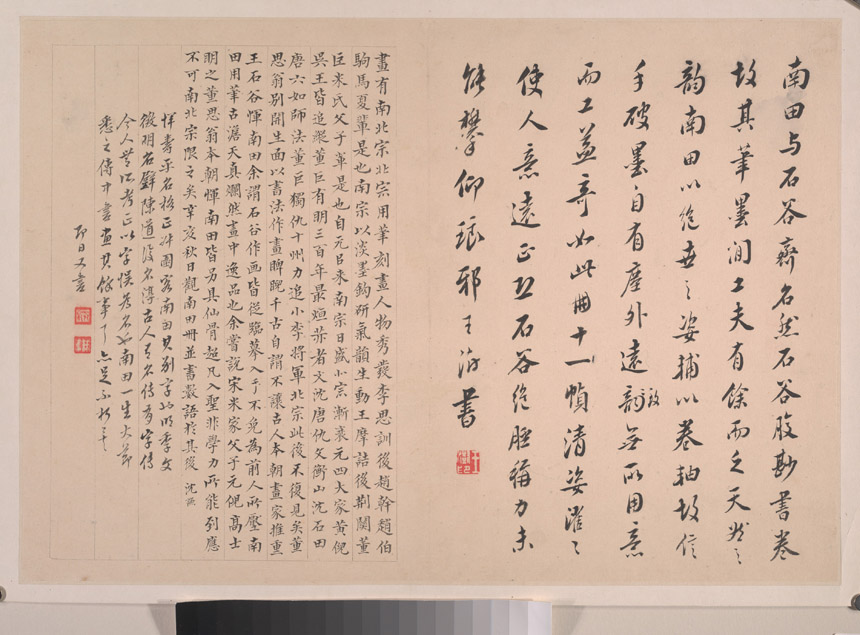 南田与石谷齊名然石谷腹尠書卷
故其筆墨間工夫有餘而乏天然之
韵南田以絕世之姿補以卷軸故信
手破墨自有塵外遠韵無所用意
而工益奇如此冊十一幀清姿濯々
使人意遠正恐石谷絕脰穪力未
能攀仰琅邪王 書
畫有南北宗北宗用筆刻畫人物秀發李思訓後趙幹趙伯
駒馬夏輩是也南宗以淡墨鈎研氣韻生動王摩詰後荆關董
巨米氏父子輩是也自元呂来南宗日盛小宗漸衰元四大家黄倪
吳王皆追蹤董巨有明三百年最烜赫者文沈唐仇文衡山沈石田
唐六如師法董巨獨仇十州力追小李將軍北宗此後不復見矣董
思翁别開生面以書法作畫睥睨千古自謂不讓古人本朝畫家推重
王石谷惲南田余謂石谷作画皆從臨摹入手不免為前人所壓南
田用筆古澹天真爛然畫中逸品也余嘗說宋米家父子元倪高士
明之董思翁本朝惲南田皆另具仙骨超凡入聖非學力所能到應
不可南北宗限之矣辛亥秋日觀南田冊並書數語於其後 沈
惲壽平名格正叔園客南田其别字如明季文
徵明名壁陳道復名淳古人有名傳有字傳
今人無從考正以字悮為名也南田一生大節
悉之傳中書畫其餘事丁亦足不朽矣
即日又書